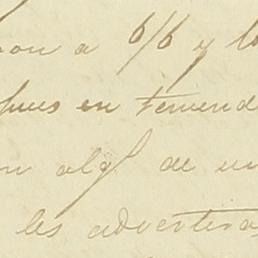 on a 6/6 y lo
pues en teniend
n algs de un
les advertira